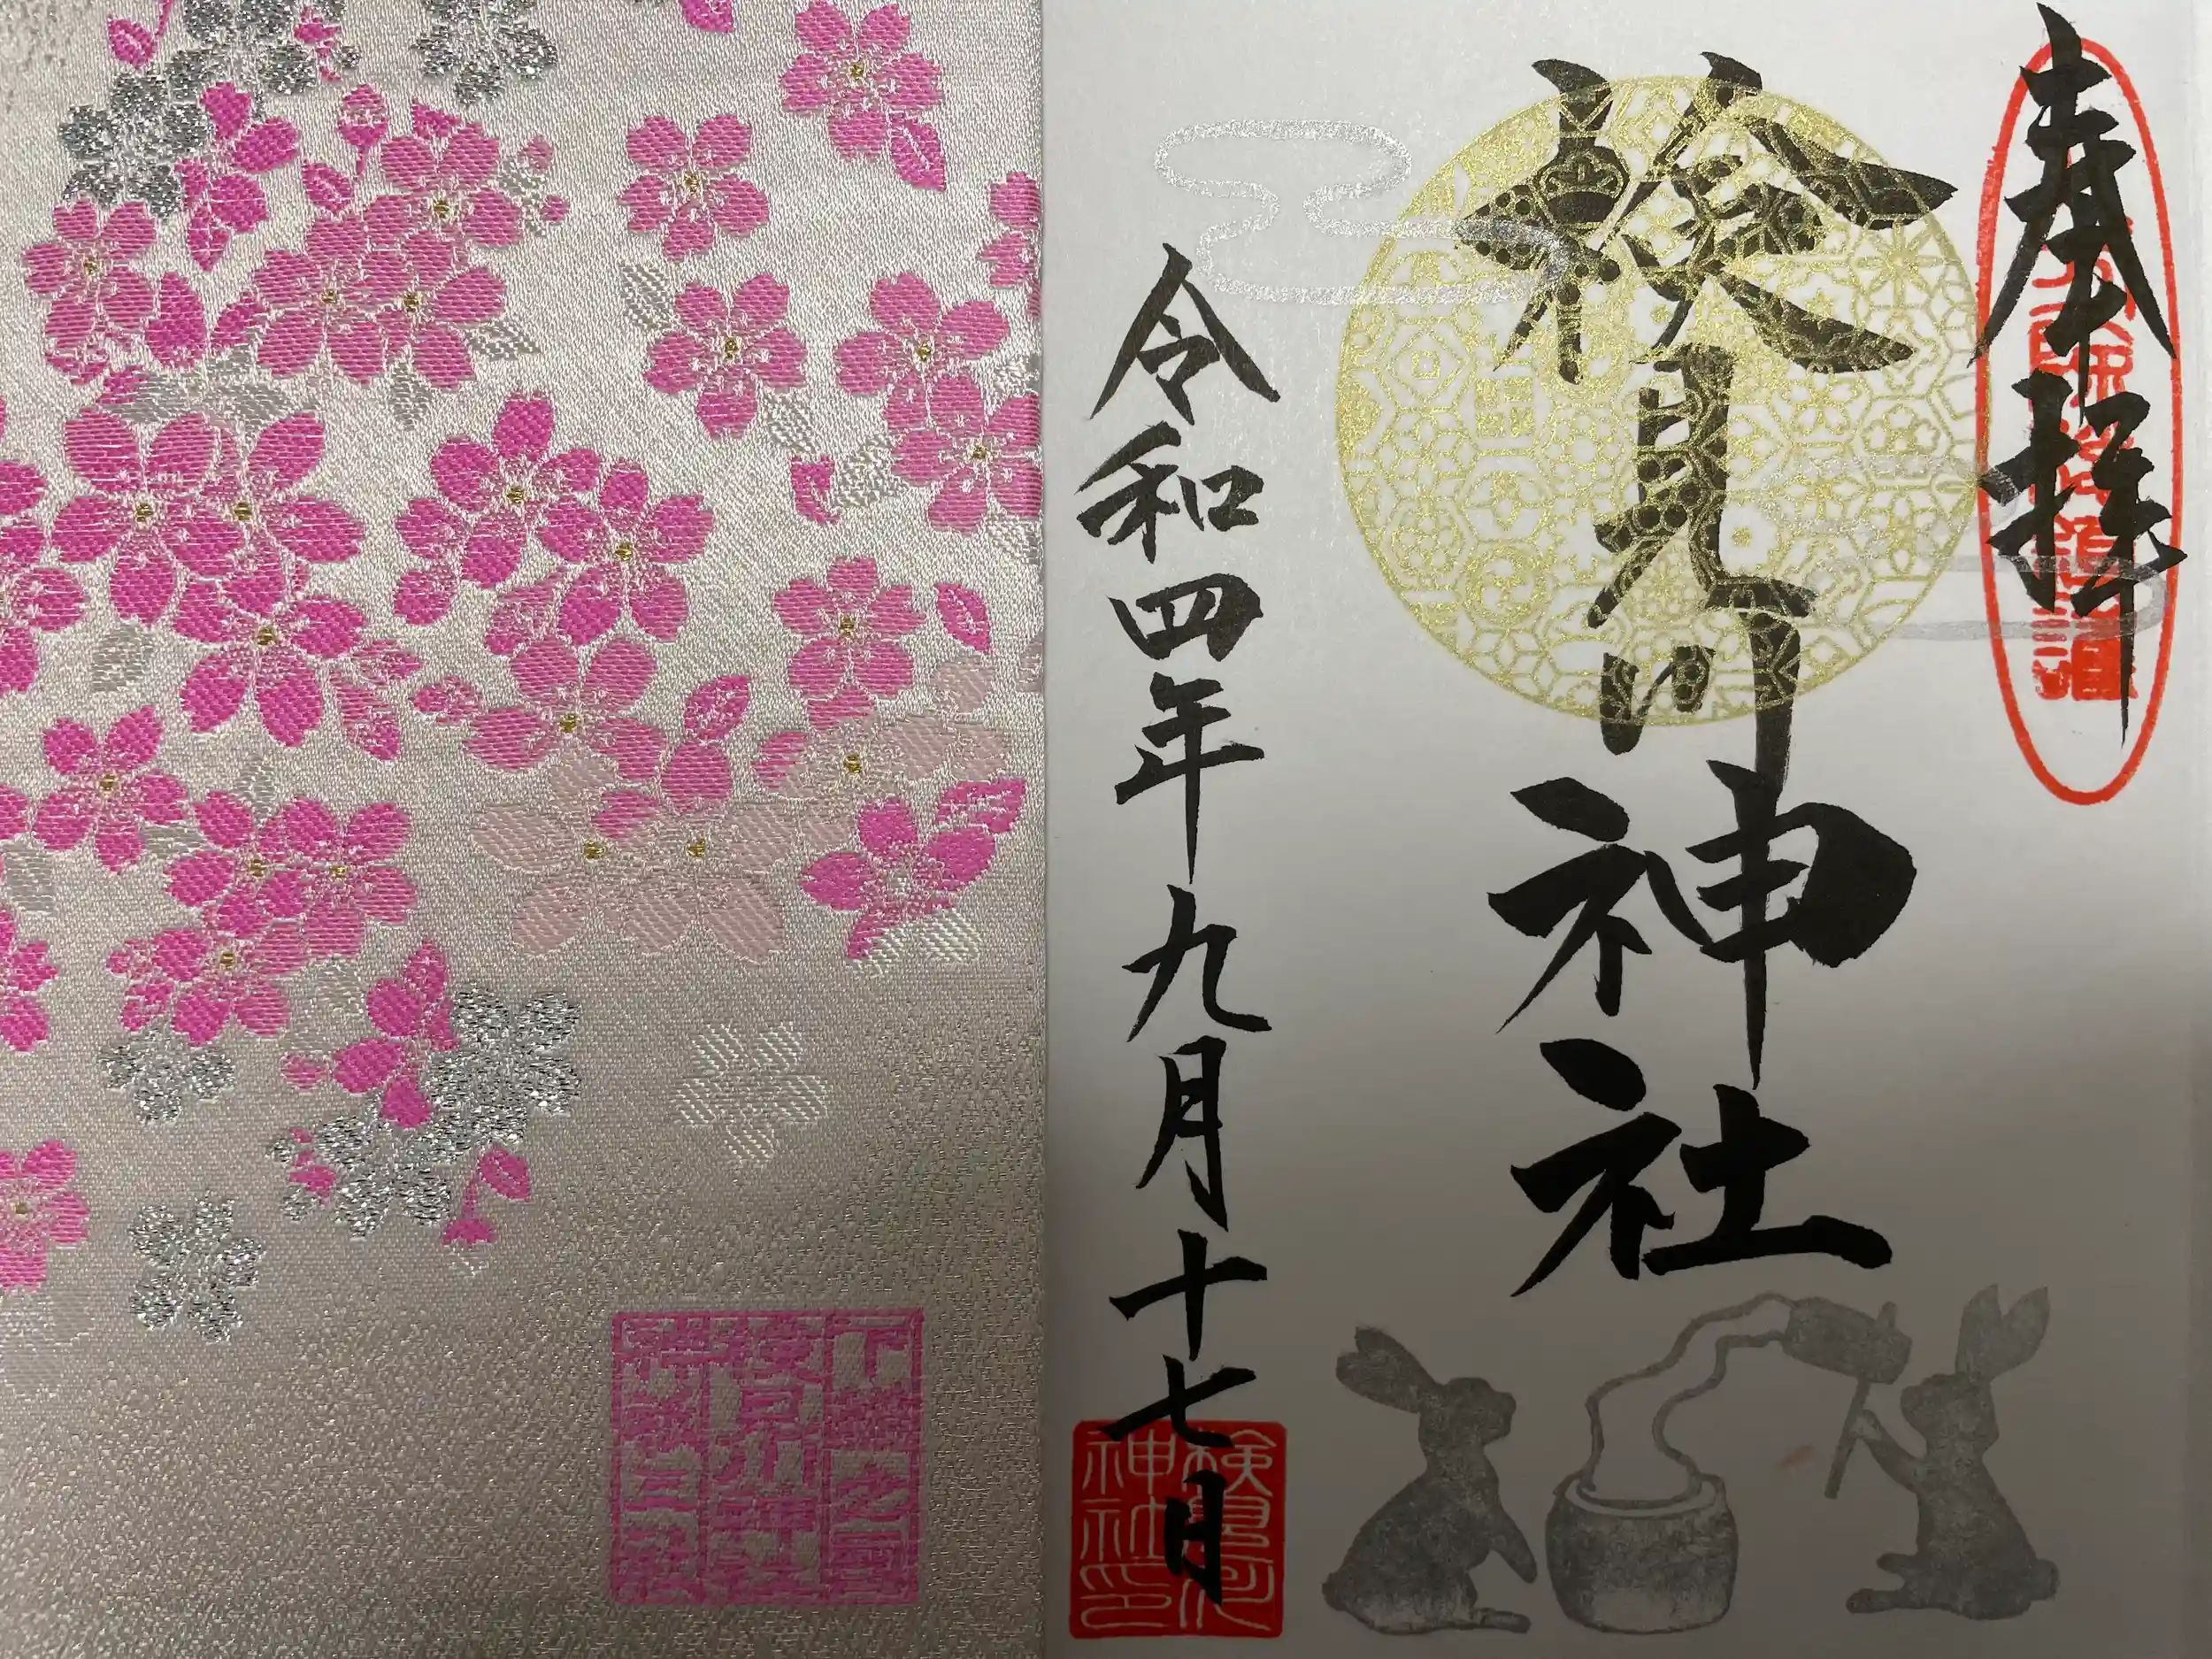 奉拝
検見川神社
令和四年九月十七日
検見川
神社印
下総之国
検見川神社